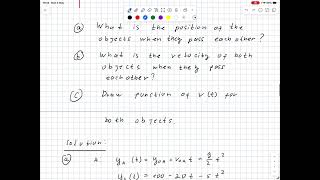 (a) What is the position of the
objects when they pass each other?
(b) What is the velocity of both
objects when they pass
each other?
(c) Draw function of v(t) for
both objects.
Solution:
(a) A: y_A (t) = y_0A - v_0A t - g/2 t²
y_A (t) = 100 - 20t - 5t²